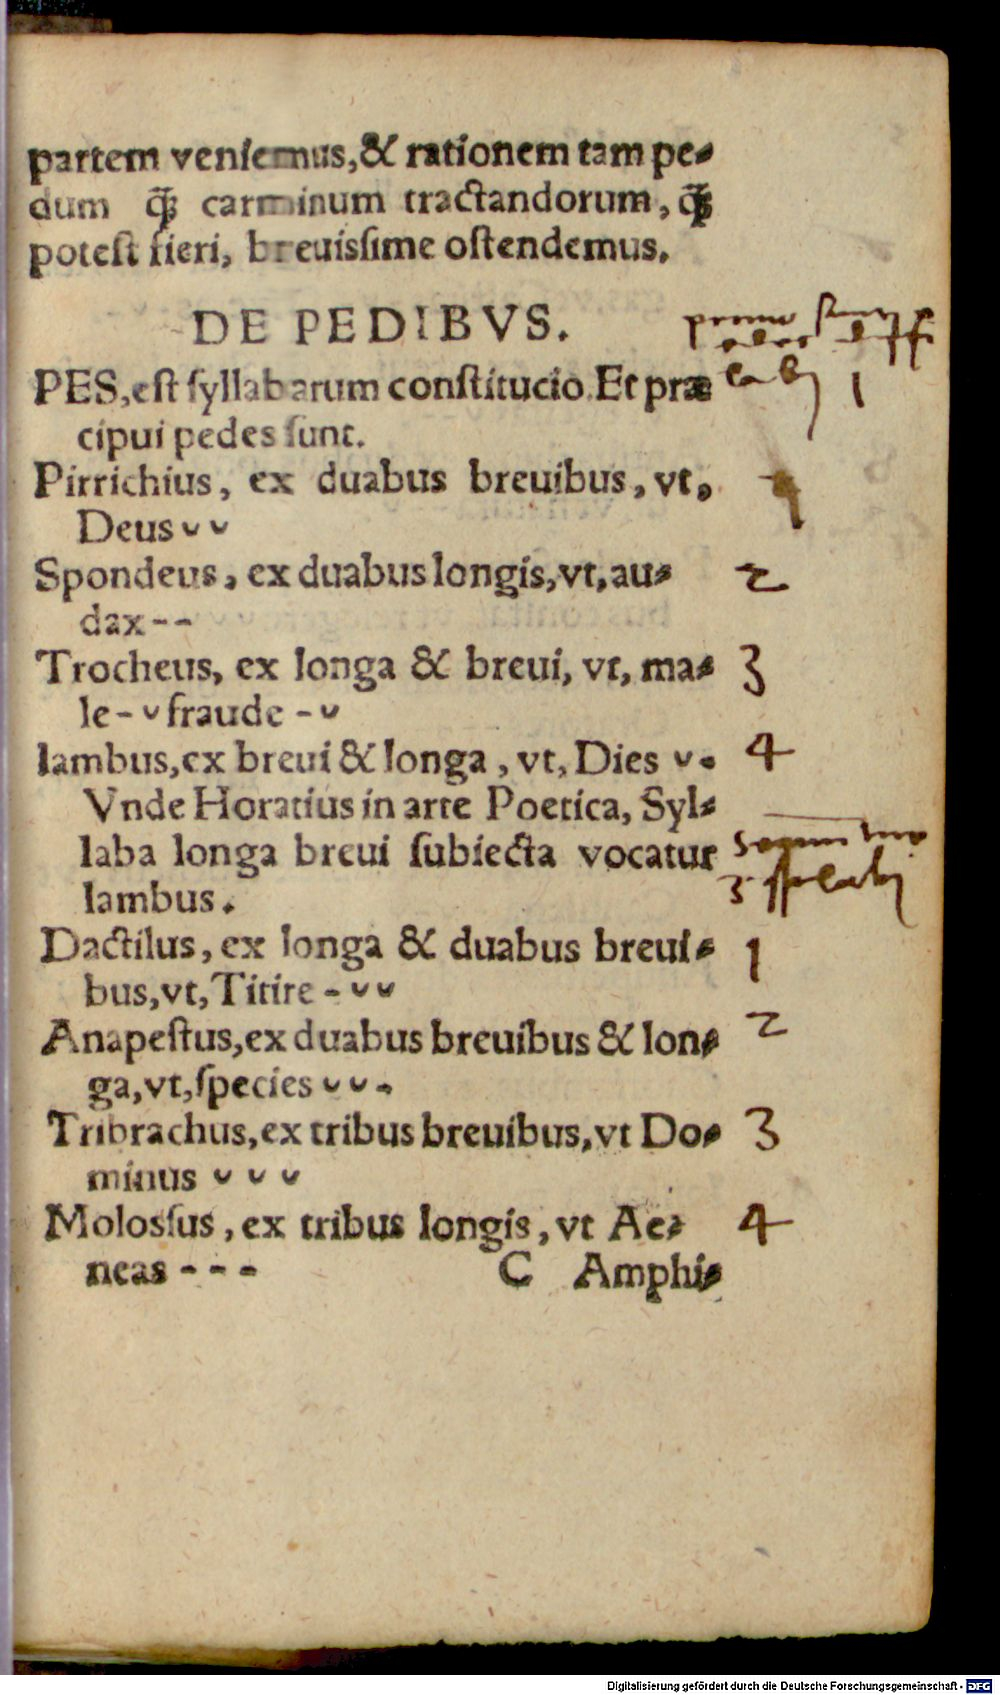 partem veniemus, & rationem tam pe-
dum q̃ꝫ carminum tractandorum, q̃ꝫ
potest fieri, breuissime ostendemus.
DE PEDIBVS.
PES, est syllabarum constitucio. Et præ
cipui pedes sunt.
1
Pirrichius, ex duabus breuibus, vt,
Deus ᴗ ᴗ
Spondeus, ex duabus longis, vt, au-
2
dax - -
Trocheus, ex longa & breui, vt, ma-
3
le - ᴗ fraude - ᴗ
Iambus, ex breui & longa, vt, Dies ᴗ -
4
Vnde Horatius in arte Poetica, Syl-
laba longa breui subiecta vocatur
Iambus.
Dactilus, ex longa & duabus breui-
1
bus, vt, Titire - ᴗ ᴗ
Anapestus, ex duabus breuibus & lon-
2
ga, vt, species ᴗ ᴗ -
Tribrachus, ex tribus breuibus, vt Do-
3
minus ᴗ ᴗ ᴗ
Molossus, ex tribus longis, vt Ae-
4
neas - - -
C Amphi-
Digitalisierung gefördert durch die Deutsche Forschungsgemeinschaft - DFG